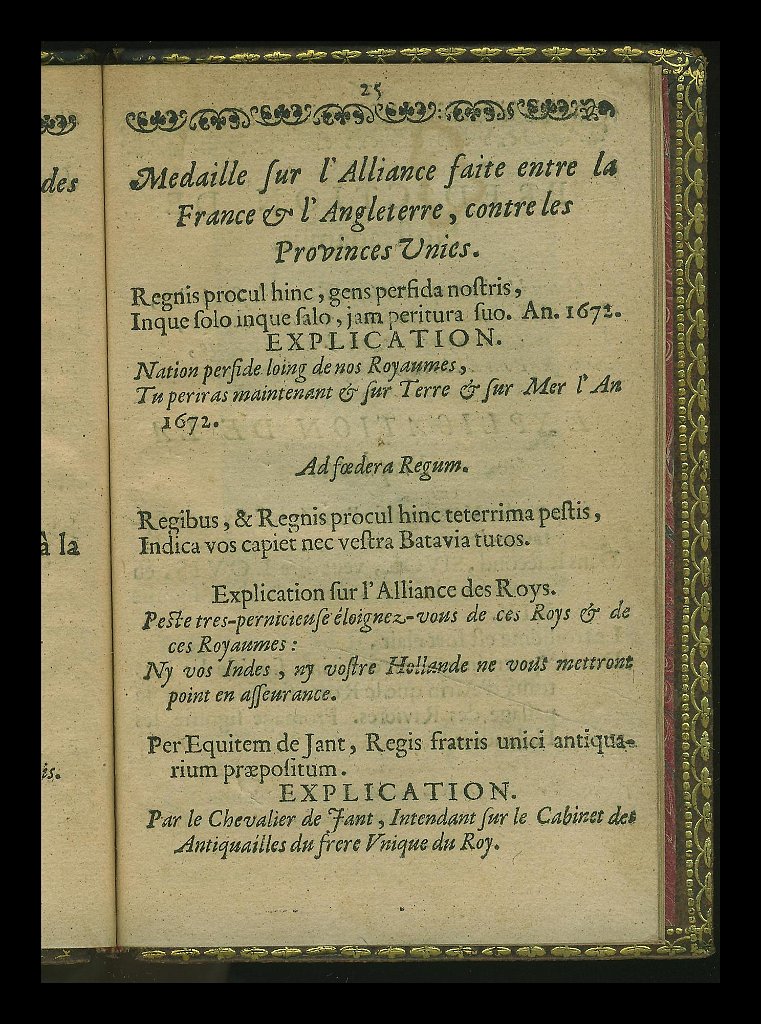 des
à la
is.
25
Medaille ſur l'Alliance faite entre la
France & l'Angleterre, contre les
Provinces Unies.
Regnis procul hinc, gens perfida noſtris,
Inque ſolo inque ſalo, jam peritura ſuo. An. 1672.
EXPLICATION.
Nation perfide loing de nos Royaumes,
Tu periras maintenant & ſur Terre & ſur Mer l'An
1672.
Ad fœdera Regum.
Regibus, & Regnis procul hinc teterrima peſtis,
Indica vos capiet nec veſtra Batavia tutos.
Explication ſur l'Alliance des Roys.
Peſte tres-pernicieuſe éloignez-vous de ces Roys & de
ces Royaumes :
Ny vos Indes, ny voſtre Hollande ne vous mettront
point en aſſeurance.
Per Equitem de Jant, Regis fratris unici antiqua-
rium præpoſitum.
EXPLICATION.
Par le Chevalier de Jant, Intendant ſur le Cabinet des
Antiquailles du frere Vnique du Roy.